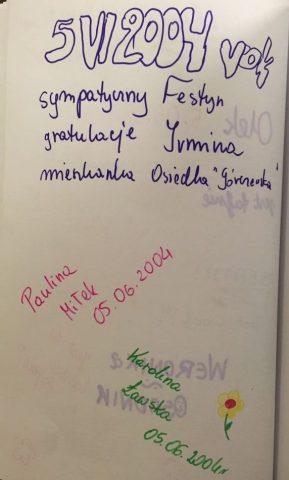 5 VI 2004 rok
sympatyczny Festyn
gratulacje Irmina
mieszkanka Osiedla
Paulina
Miłek
05.06.2004
Karolina
Ławska
05.06.2004r
WERONIKA